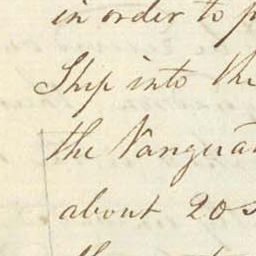 in order to p
Ship into the
the Vangua
about 20